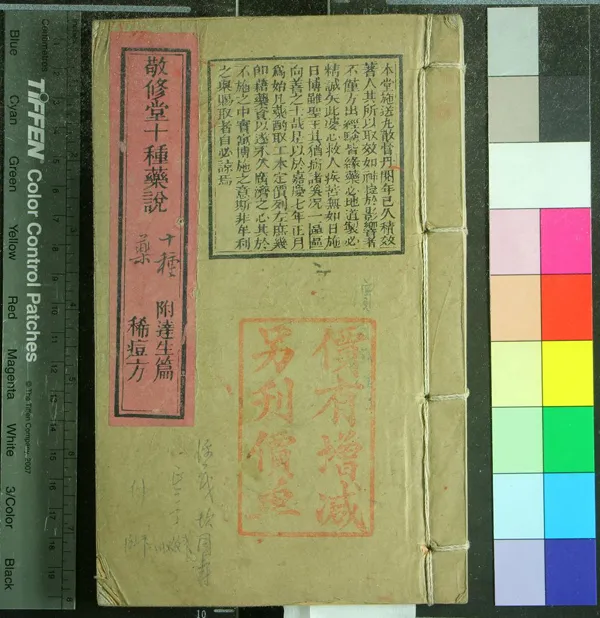 本堂施送丸散膏丹閱年已久積效
著人其所以取效如神捷於影響者
不僅方出經驗皆緣藥必地道製必
精誠矢此虔心救人疾苦無如日施
日博雖聖王其猶病諸奚況一區區
向善之士哉是以於嘉慶七年正月
為始凡藥酌取工本定價列左庶幾
即藉藥資以遂永久廣濟之心其於
不施之中實寓博施之意斯非牟利
之取者自必諒焉
價有增減
另刊價
敬修堂十種藥說
十種
藥
附達生篇
稀痘方
TIFFEN Color Control Patches
© The Tiffen Company, 2007
Centimetres
Blue
Cyan
Green
Yellow
Red
Magenta
White
3/Color
Black